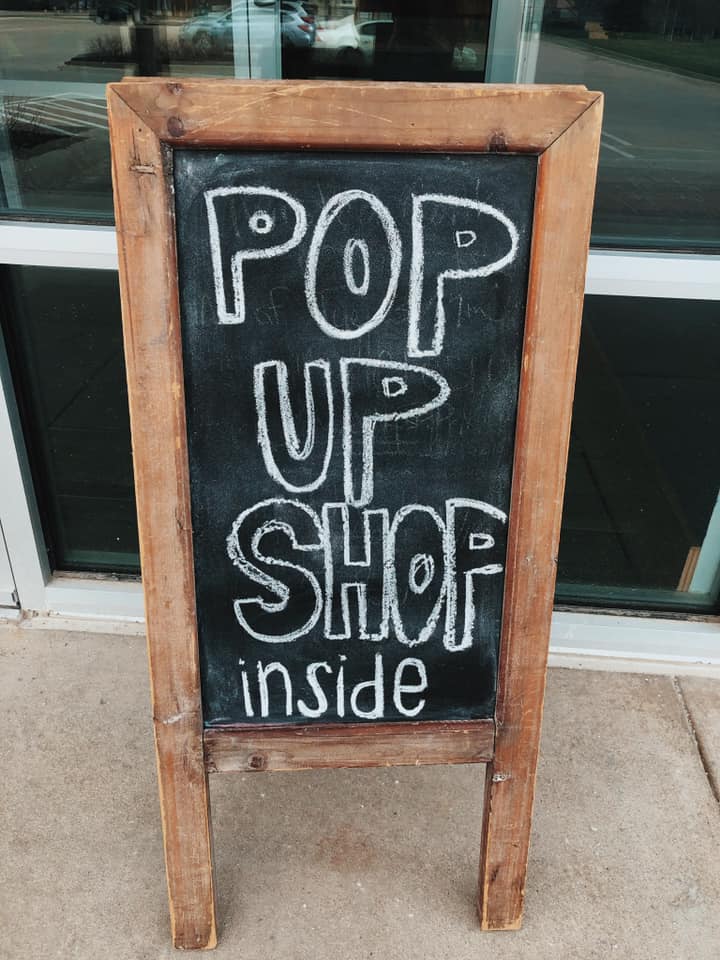 POP
UP
SHOP
inside